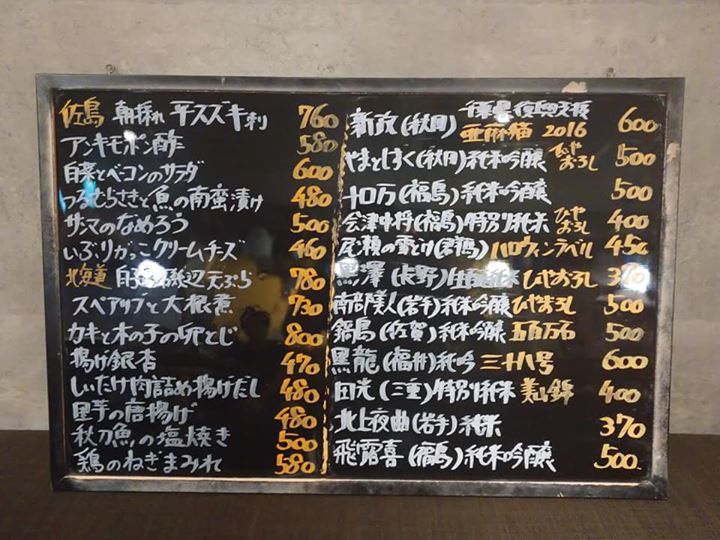 佐島 朝採れ 平スズキ刺 760
アンキモポン酢 580
白菜とベーコンのサラダ 600
つるむらさきと魚の南蛮漬け 480
サンマのなめろう 500
いぶりがっこクリームチーズ 460
北海道 白子の磯辺天ぷら 780
スペアリブと大根煮 730
カキと木の子の卵とじ 800
揚げ銀杏 470
しいたけ肉詰め揚げだし 480
里芋の唐揚げ 480
秋刀魚の塩焼き 500
鶏のねぎまみれ 580
新政(秋田) 千葉県 亜麻猫 2016 600
やまとしずく(秋田)純米吟醸 ひやおろし 500
十口万(福島)純米吟醸 500
会津中将(福島)特別純米 ひやおろし 400
尾瀬の雪どけ(群馬) ハロウィンラベル 450
黒澤(長野)生酛純米 ひやおろし 370
南部美人(岩手)純米吟醸 ひやおろし 500
鍋島(佐賀)純米吟醸 五百万石 500
黒龍(福井)純吟 三十八号 600
田光(三重)特別純米 美山錦 400
北上夜曲(岩手)純米 370
飛露喜(福島)純米吟醸 500